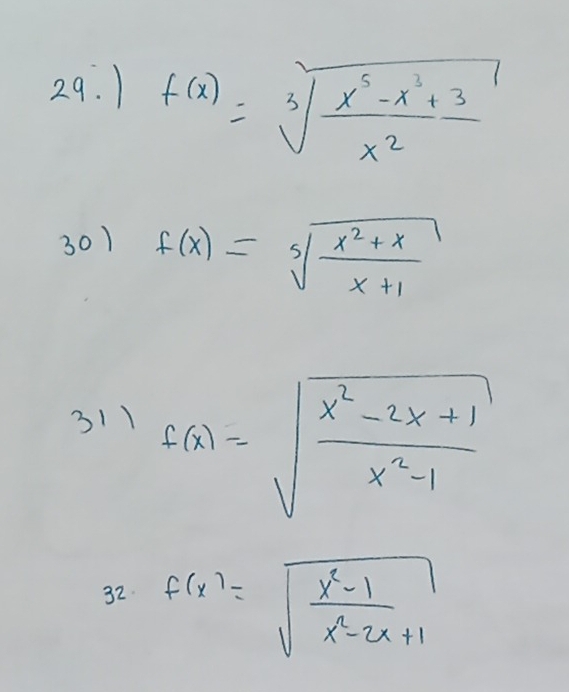 29.) f(x) = ∛((x⁵ - x³ + 3)/(x²))
30) f(x) = ⁵√((x² + x)/(x + 1))
31) f(x) = √((x² - 2x + 1)/(x² - 1))
32. f(x) = √((x² - 1)/(x² - 2x + 1))